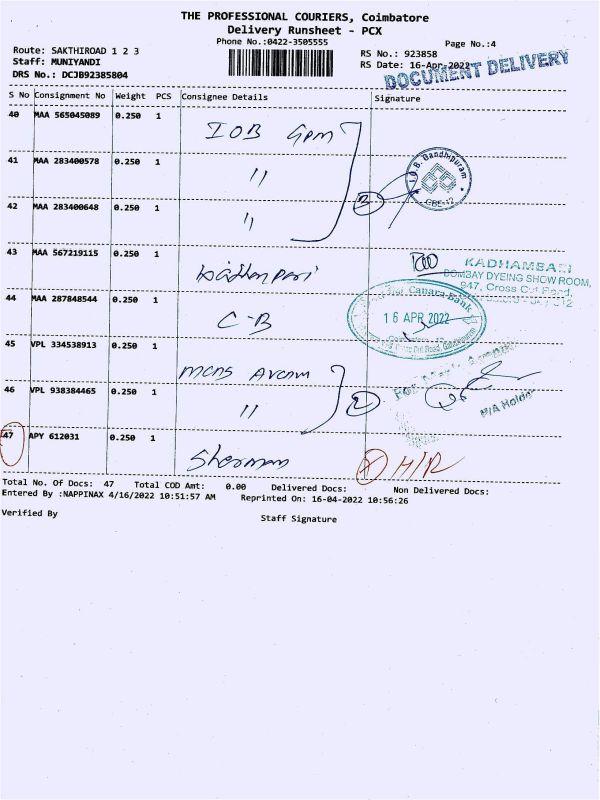 THE PROFESSIONAL COURIERS, Coimbatore
Delivery Runsheet - PCX
Phone No.:0422-3505555
Page No.:4
Route: SAKTHIROAD 1 2 3
RS No.: 923858
Staff: MUNIYANDI
RS Date: 16-Apr-2022
DRS No.: DCJB92385804
DOCUMENT DELIVERY
S No Consignment No Weight PCS Consignee Details Signature
40 MAA 565045089 0.250 1 IOB Gpm
41 MAA 283400578 0.250 1 "
I.O.B. Gandhipuram
CBE-12
42 MAA 283400648 0.250 1 " 3
43 MAA 567219115 0.250 1
KADHAMBARI
BOMBAY DYEING SHOW ROOM,
947, Cross Cut Road,
44 MAA 287848544 0.250 1 C-B
Canara Bank
16 APR 2022
45 VPL 334538913 0.250 1
46 VPL 938384465 0.250 1 " 2
M/A Holder
47 APY 612031 0.250 1 Sherman H/R
Total No. Of Docs: 47 Total COD Amt: 0.00 Delivered Docs: Non Delivered Docs:
Entered By :NAPPINAX 4/16/2022 10:51:57 AM Reprinted On: 16-04-2022 10:56:26
Verified By
Staff Signature